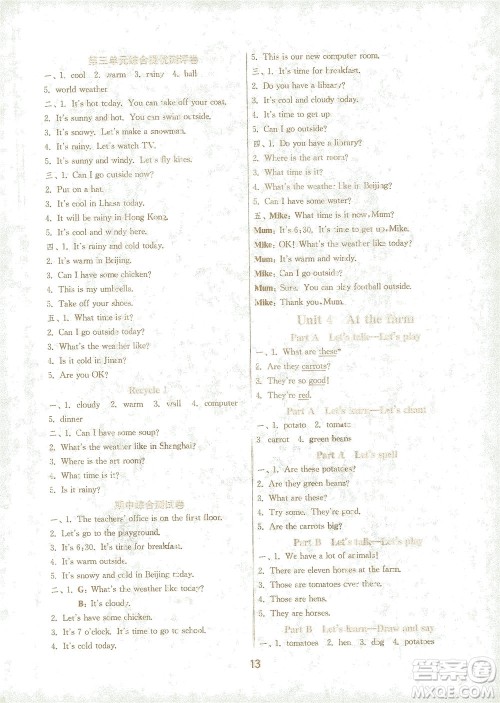 第三单元综合提优测评卷
一、1. cool 2. warm 3. rainy 4. ball
5. world weather
二、1. It's hot today. You can take off your coat.
2. It's sunny and hot. You can swim outside.
3. It's snowy. Let's make a snowman.
4. It's rainy. Let's watch TV.
5. It's sunny and windy. Let's fly kites.
三、1. Can I go outside now?
2. Put on a hat.
3. It's cool in Lhasa today.
4. It will be rainy in Hong Kong.
5. It's cool and windy here.
四、1. It's rainy and cold today.
2. It's warm in Beijing.
3. Can I have some chicken?
4. This is my umbrella.
5. Take off your shoes.
五、1. It's cold outside.
2. Can I go outside today?
3. What's the weather like?
4. Is it cold in Jinan?
5. Are you OK?
Recycle 1
一、1. cloudy 2. warm 3. wall 4. computer
5. dinner
二、1. Can I have some soup?
2. What's the weather like in Shanghai?
3. What a nice library!
4. What time is it?
5. It's raining now.
期中综合测试卷
一、1. The teachers' office is on the first floor.
2. Let's go to the playground.
3. It's 6:30. It's time for breakfast.
4. It's warm outside.
5. It's snowy and cold in Beijing today.
二、1. G: What's the weather like today?
B: It's cloudy.
2. Let's have some chicken.
3. It's 7 o'clock. It's time to go to school.
4. It's cold today.
5. This is our new computer room.
三、1. It's time for breakfast.
2. Do you have a library?
3. It's cold and cloudy today.
4. It's time to get up.
5. Can I go outside?
四、1. Do you have a library?
2. Where is the art room?
3. What time is it?
4. What's the weather like in Beijing?
5. Can I have some water?
五、Mike: What time is it now, Mum?
Mum: It's 6:30, It's time to get up.
Mike: OK! What's the weather like today?
Mum: It's warm and windy.
Mike: Can I go outside?
Mum: Sure. You can play football outside.
Mike: Thank you, Mum.
Unit 4 At the farm
Part A Let's talk—Let's play
一、1. What are these?
2. Are they carrots?
3. They're so good!
4. They're red.
Part A Let's learn—Let's chant
一、1. potato 2. tomato
3. carrot 4. green beans
Part A Let's spell
一、1. Are these potatoes?
2. Are they green beans?
3. What are these?
4. Try some. They're good.
5. Are the carrots big?
Part B Let's talk—Let's play
一、1. We have a lot of animals!
2. These are eleven horses.
3. Those are tomatoes over there.
4. Those are hens.
5. They are horses.
Part B Let's learn—Draw and say
一、1. tomatoes 2. hen 3. dog 4. potatoes
13
答案圈
MXQE.COM